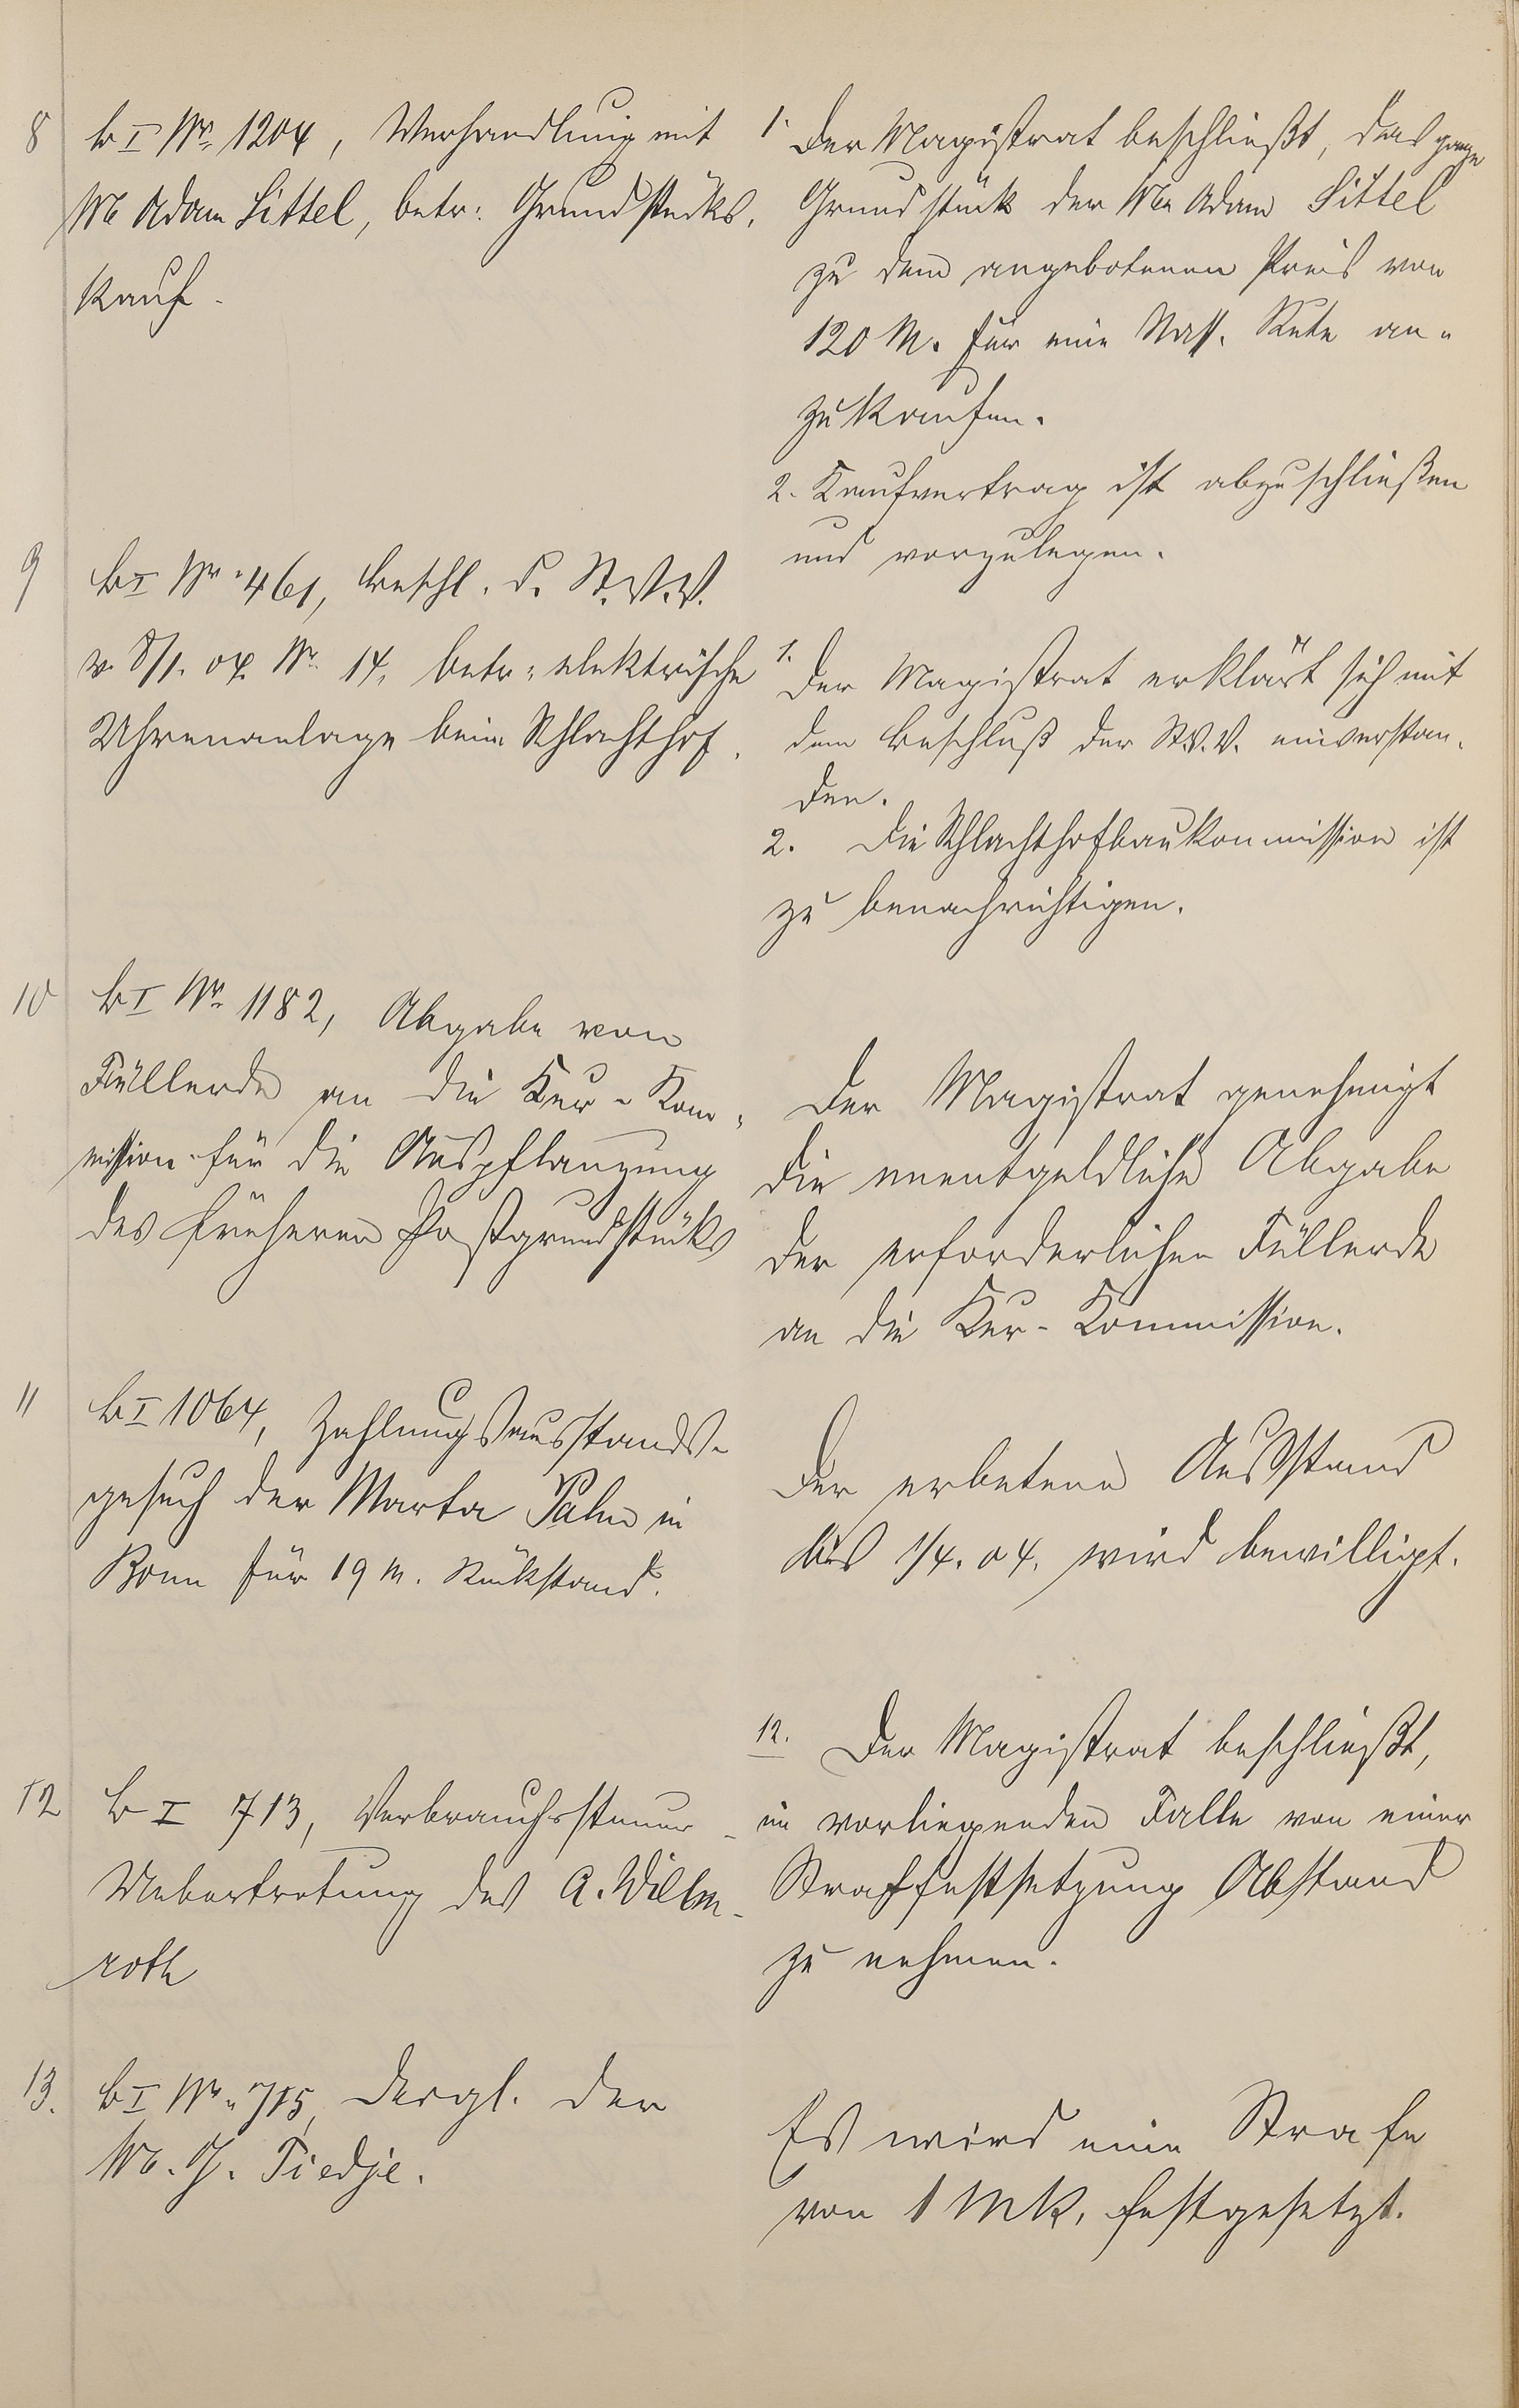 8 B I Nr. 1204, Verhandlung mit
Ww Adam Sittel, betr: Grundstücks-
kauf.
1. Der Magistrat beschließt, das ganze
Grundstück der Ww Adam Sittel
zu dem angebotenen Preis von
120 M. für eine Nass. Rute an-
zukaufen.
2. Kaufvertrag ist abzuschließen
und vorzulegen.
9 B I Nr. 461, Beschl. d. St.V.V.
v. 8/1. 04. Nr. 14, betr: elektrische
Uhrenanlage beim Schlachthof.
1. Der Magistrat erklärt sich mit
dem Beschluß der St.V.V. einverstan-
den.
2. Die Schlachthofbaukommission ist
zu benachrichtigen.
10 B I Nr. 1182, Abgabe von
Füllerde an die Kur-Kom-
mission für die Auspflanzung
des früheren Postgrundstücks
Der Magistrat genehmigt
die unentgeldliche Abgabe
der erforderlichen Füllerde
an die Kur-Kommission.
11 B I 1064, Zahlungsausstands-
gesuch der Marta Palm in
Bonn für 19 M. Rückstand.
Der erbetene Ausstand
bis 1/4. 04. wird bewilligt.
12 B I 713, Verbrauchssteuer-
Uebertretung des A. Wilm-
roth
12. Der Magistrat beschließt,
im vorliegenden Falle von einer
Straffestsetzung Abstand
zu nehmen.
13. B I Nr. 715, dergl. der
Ww. J. Tiedje.
Es wird eine Strafe
von 1 Mk. festgesetzt.